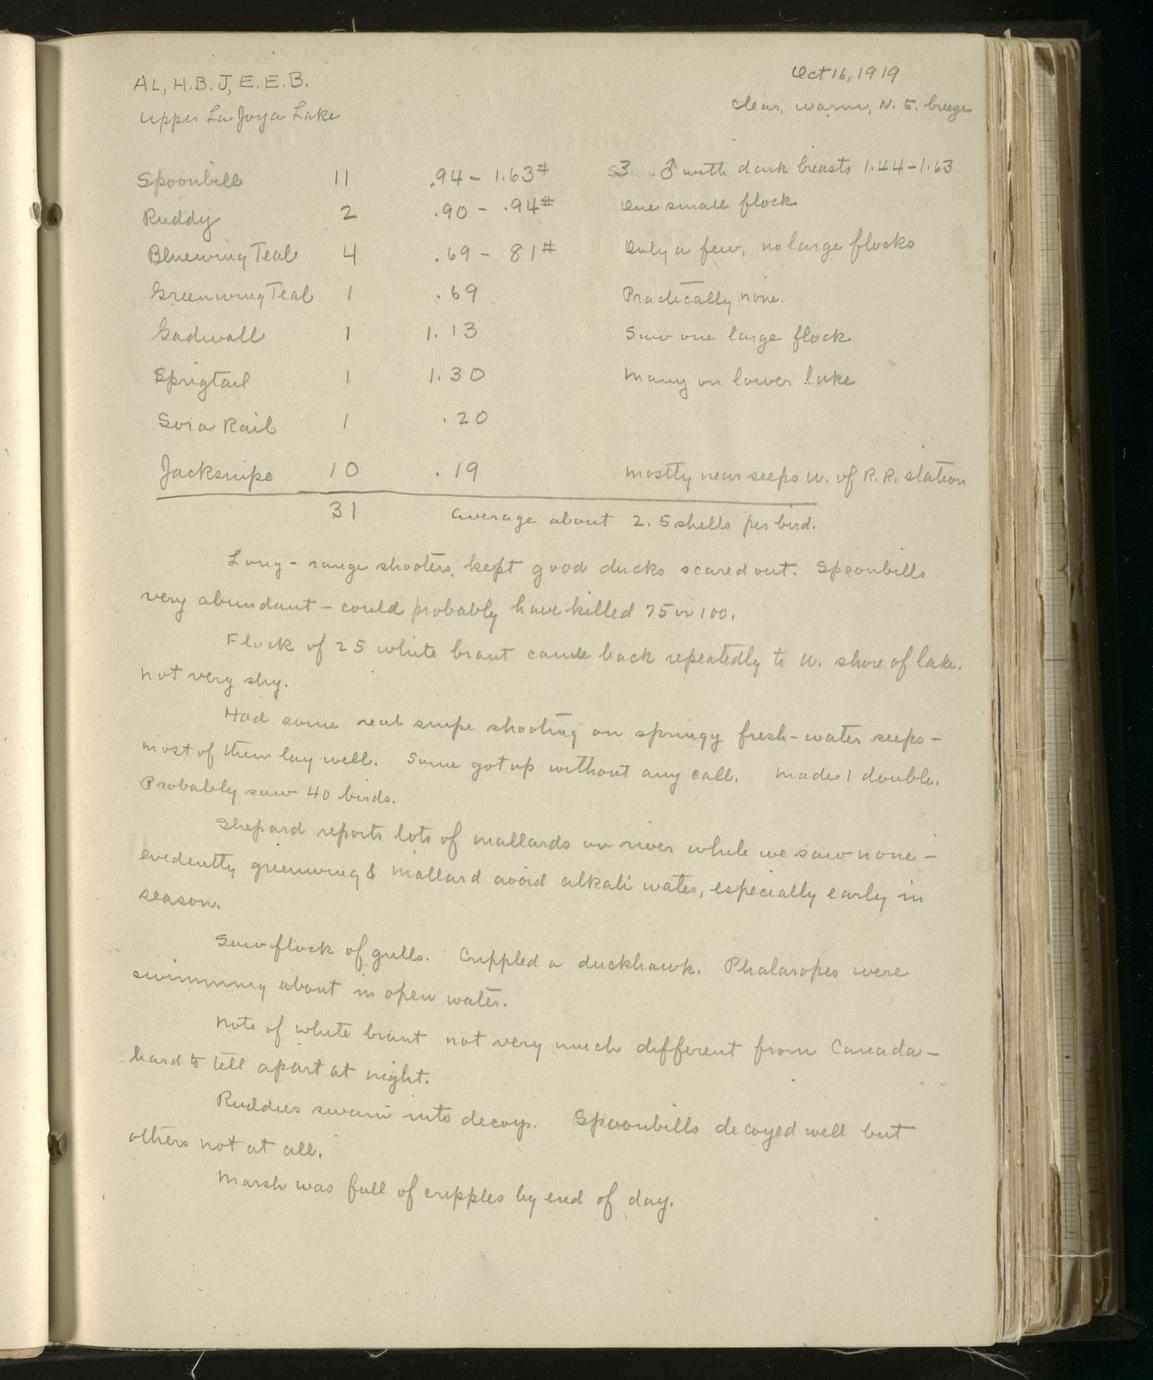 AL, H.B.J, E.E.B.
Oct 16, 1919
Upper La Joya Lake
clear, warm, N.E. breeze
Spoonbill 11 .94 - 1.63# 3 ♂ with dark breasts 1.44-1.63
Ruddy 2 .90 - .94# One small flock
Bluewing Teal 4 .69 - 81# Only a few, no large flocks
Greenwing Teal 1 .69 Practically none.
Gadwall 1 1.13 Saw one large flock
Sprigtail 1 1.30 Many on lower lake
Sora Rail 1 .20
Jacksnipe 10 .19 mostly near seeps W. of R.R. station
31 average about 2.5 shells per bird.
Long-range shooters kept good ducks scared out. Spoonbills
very abundant - could probably have killed 75 or 100.
Flock of 25 white brant came back repeatedly to W. shore of lake.
not very shy.
Had some real snipe shooting on springy fresh-water seeps -
most of them lay well. Some got up without any call. Made 1 double.
Probably saw 40 birds.
Shepard reports lots of mallards on river while we saw none -
evidently greenwing & mallard avoid alkali water, especially early in
season.
Saw flock of gulls. Crippled a duckhawk. Phalaropes were
swimming about in open water.
Note of white brant not very much different from Canada -
hard to tell apart at night.
Ruddies swam into decoys. Spoonbills decoyed well but
others not at all.
Marsh was full of cripples by end of day.